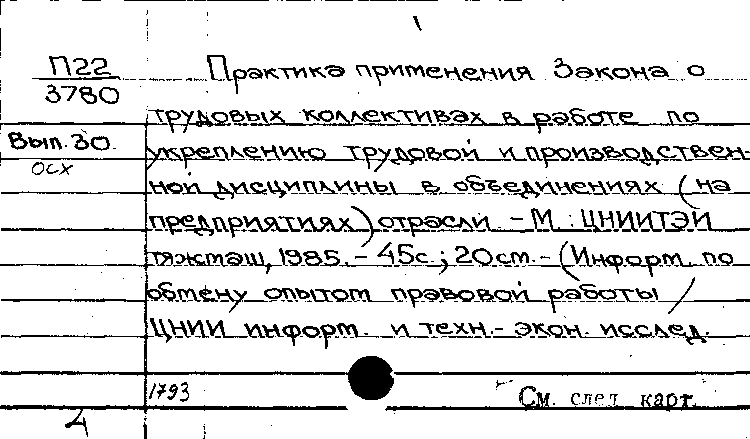 П22
3780
Вып. 30.
ОСХ
Практика применения Закона о
трудовых коллективах в работе по
укреплению трудовой и производствен-
ной дисциплины в объединениях (на
предприятиях) отрасли. - М.: ЦНИИТЭИ
тяжмаш, 1985. - 45с.; 20см. - (Информ. по
обмену опытом правовой работы /
ЦНИИ информ. и техн.-экон. исслед.
1793
См. след. карт.
4